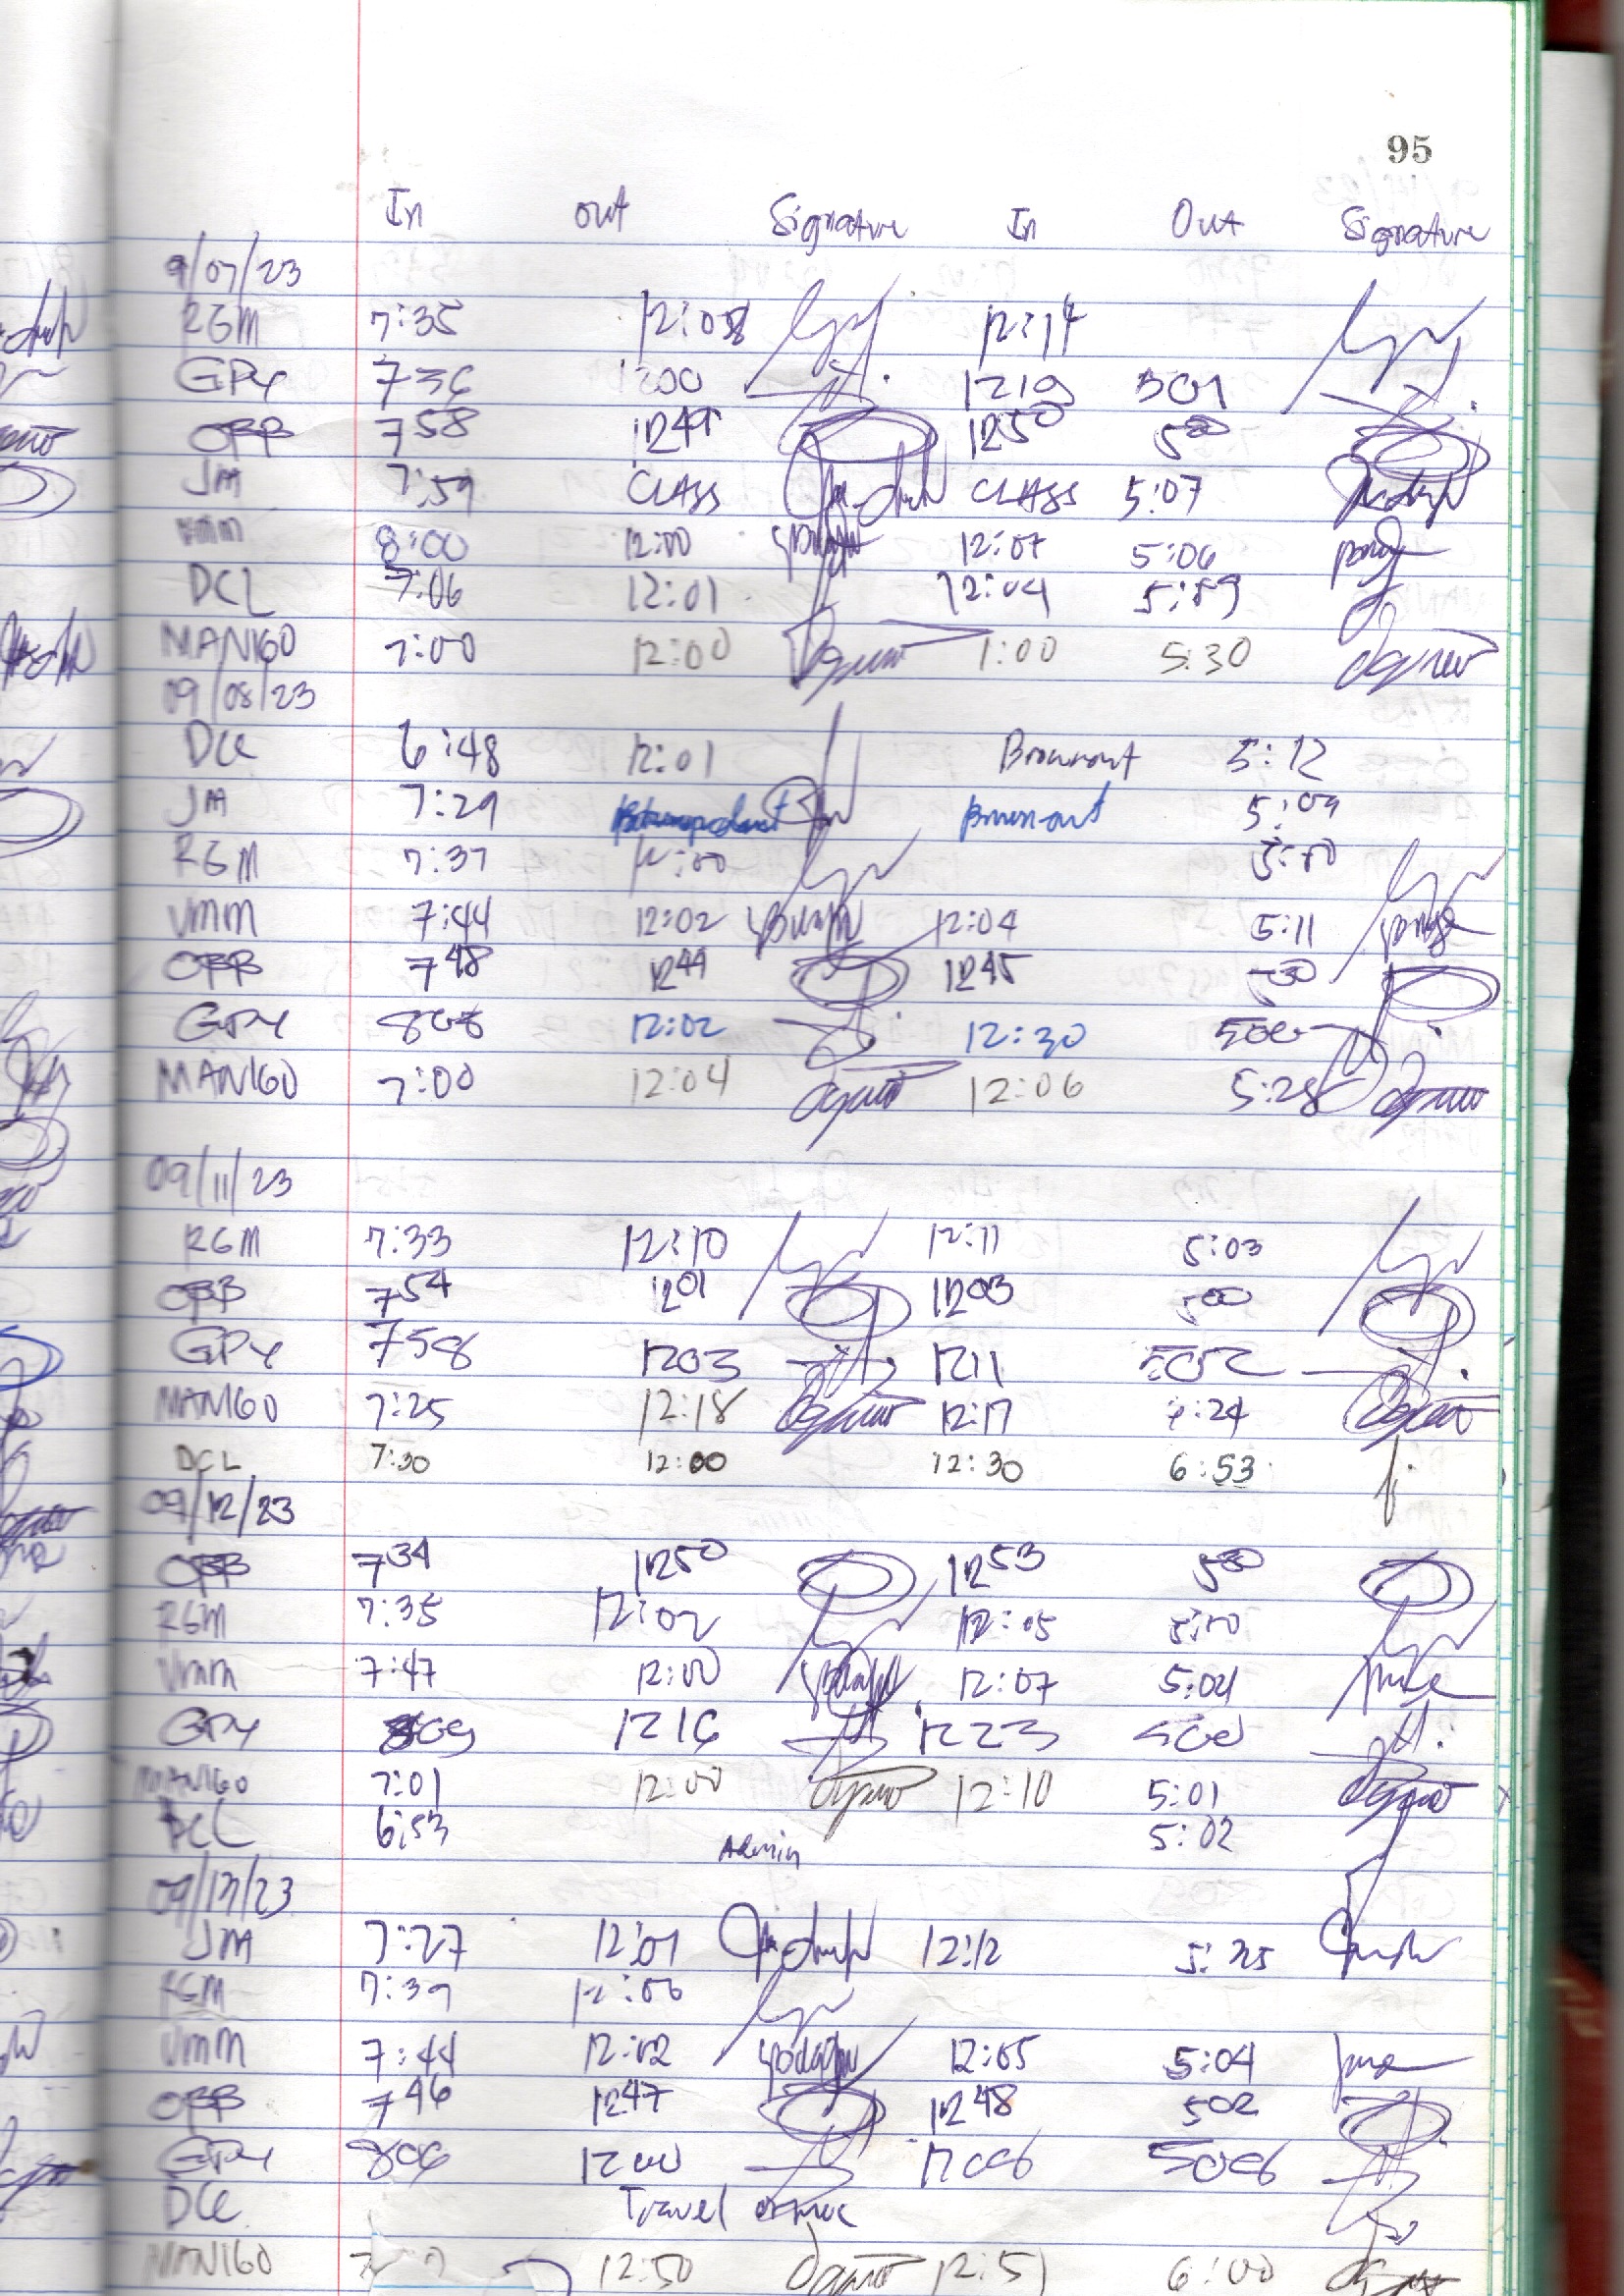 95
In out Signature In Out Signature
9/07/23
RGM 7:35 12:08 12:14
GPY 736 1200 1219 501
OBB 7 58 12 49 12 50 5 00
JM 7:59 CLASS CLASS 5:07
VMM 8:00 12:00 12:07 5:06
DCL 7:06 12:01 12:04
MANIGO 7:00 12:00 1:00 5:30
09/08/23
DCL 6:48 12:01 Brownout 5:12
JM 7:29 Brownout 5:09
RGM 7:37 12:00 5:00
VMM 7:44 12:02 12:04 5:11
OBB 7 48 12 44 12 45
GPY 808 12:02 12:30 500
MANIGO 7:00 12:04 12:06 5:28
09/11/23
RGM 7:33 12:10 12:11 5:03
OBB 7 54 12 01 12 03 5 00
GPY 758 1203 1211 502
MANIGO 7:25 12:18 12:17
DCL 7:30 12:00 12:30 6:53
09/12/23
OBB 7 34 12 50 12 53
RGM 7:35 12:02 12:05 5:00
VMM 7:47 12:00 12:07 5:04
GPY 809 1216 1223
MANIGO 7:01 12:00 12:10 5:01
DCL 6:53 Admin 5:02
09/13/23
JM 7:27 12:01 12:12
RGM 7:39 12:06
VMM 7:44 12:02 12:05 5:04
OBB 7 46 12 47 12 48 5 02
GPY 806 1200 1206 506
DCL Travel ormoc
MANIGO 12:50 12:51 6:00